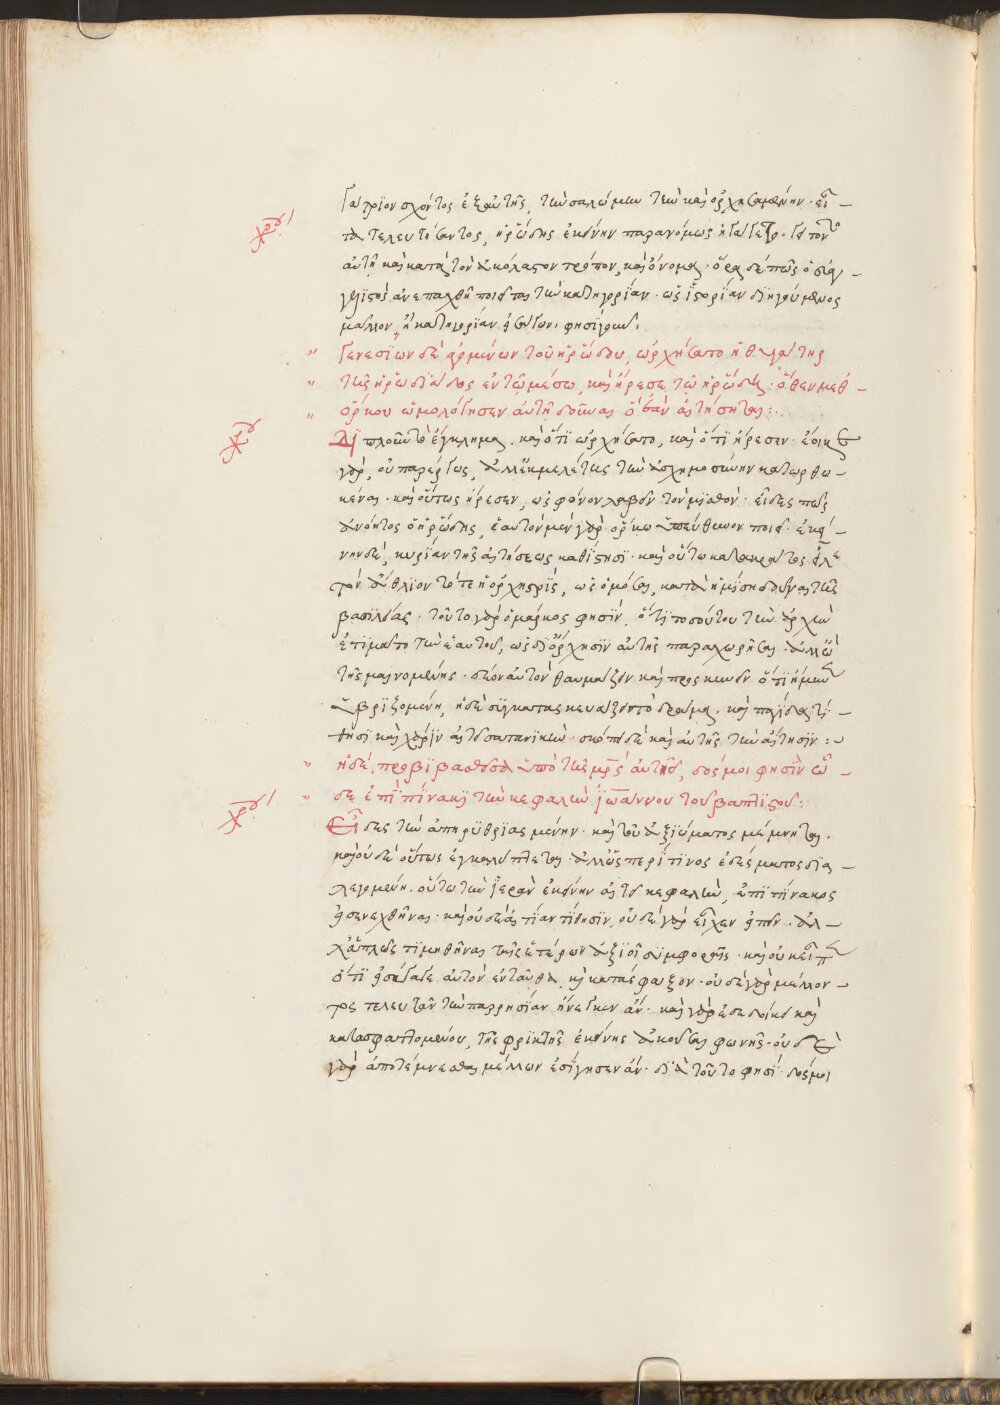 γάτριον σχόντος ἐξ αὐτῆς, τὴν σαλώμην τὴν καὶ ὀρχησαμένην· εἶ
τα τελευτήσαντος, ἡρώδης ἐκείνην παρανόμως ἠγάγετο·
αὐτὴ καὶ κατὰ τὸν ἀκόλαστον τρόπον, καὶ ὄνομα· ὅρα δὲ πῶς ὁ εὐαγ
γελιστὴς ἀνεπαχθῆ ποιεῖται τὴν κατηγορίαν· ὡς ἱστορίαν διηγούμενος
μᾶλλον, ἢ κατηγορίαν φησὶ γοῦν·
Γενεσίων δὲ ἀγομένων τοῦ ἡρώδου, ὠρχήσατο ἡ θυγάτηρ
τῆς ἡρωδιάδος ἐν τῷ μέσῳ, καὶ ἤρεσε τῷ ἡρώδῃ· ὅθεν μεθ
ὅρκου ὡμολόγησεν αὐτῇ δοῦναι ὃ ἐὰν αἰτήσηται:
Διπλοῦν τὸ ἔγκλημα. καὶ ὅτι ὠρχήσατο, καὶ ὅτι ἤρεσεν· ἔοικε
γὰρ, οὐ παρέργως, ἀλλ' ἐκ μελέτης τὴν ἀσχημοσύνην κατωρθω
κέναι· καὶ οὕτως ἤρεσεν, ὡς φόνον λαβεῖν τὸν μισθόν· εἶδες πῶς
ἀνόητος ὁ ἡρώδης, ἑαυτὸν μὲν γὰρ ὅρκῳ ὑπεύθυνον ποιεῖ· ἐκεί
νην δὲ, κυρίαν τῆς αἰτήσεως καθίστησι· καὶ οὕτω κατακράτος
τὸν ἄθλιον τότε ἡ ὀρχηστρὶς, ὡς ὀμόσαι, κατὰ ἡμίση δοῦναι τῆς
βασιλείας· τοῦτο γὰρ ὁ μάρκος φησὶν, ὅτι τοσούτου τὴν ἀρχὴν
ἐτίματο τὴν ἑαυτοῦ, ὡς δι' ὄρχησιν αὐτῆς παραχωρῆσαι·
τῆς μαινομένης· δέον αὐτὸν θαυμάζειν καὶ προσκυνεῖν ὅτι ἤμυνεν
ὑβριζομένῃ, ἡ δὲ συγκατασκευάζει τὸ δρᾶμα, καὶ παγίδα τί
θησι καὶ χάριν αἰτεῖ σατανικήν· σκόπει δὲ καὶ αὐτῆς τὴν αἴτησιν:
ἡ δὲ, προβιβασθεῖσα ὑπὸ τῆς μρς αὐτῆς, δός μοι φησὶν ὧ
δε ἐπὶ πίνακι τὴν κεφαλὴν ἰωάννου τοῦ βαπτιστοῦ:
Εἶδες τὴν ἀπηρυθριασμένην· καὶ τοῦ ἀξιώματος μέμνηται.
καὶ οὐδὲ οὕτως ἐγκαλύπτεται· ἀλλ' ὥσπερ τινος ἐδέσματος δια
λεγομένη, οὕτω τὴν ἱερὰν ἐκείνην αἰτεῖ κεφαλὴν, ἐπὶ πίνακος
εἰσενεχθῆναι· καὶ οὐδὲ αἰτίαν τίθησιν, οὐδὲ γὰρ εἶχεν εἰπεῖν· ἀλ
λ' ἁπλῶς τιμηθῆναι ταῖς ἑτέρων ἀξιοῖ συμφοραῖς· καὶ οὐκ εἶπεν
ὅτι εἰσάγαγε αὐτὸν ἐνταῦθα, καὶ κατάσφαξον· οὐδὲ γὰρ μέλλον
τος τελευτᾶν τὴν παρρησίαν ἤνεγκεν ἄν· καὶ γὰρ ἐδεδοίκει καὶ
κατασφαττομένου, τῆς φρικτῆς ἐκείνης ἀκοῦσαι φωνῆς· οὐδὲ
γὰρ ἀποτέμνεσθαι μέλλων ἐσίγησεν ἄν· διὰ τοῦτο φησί· δός μοι